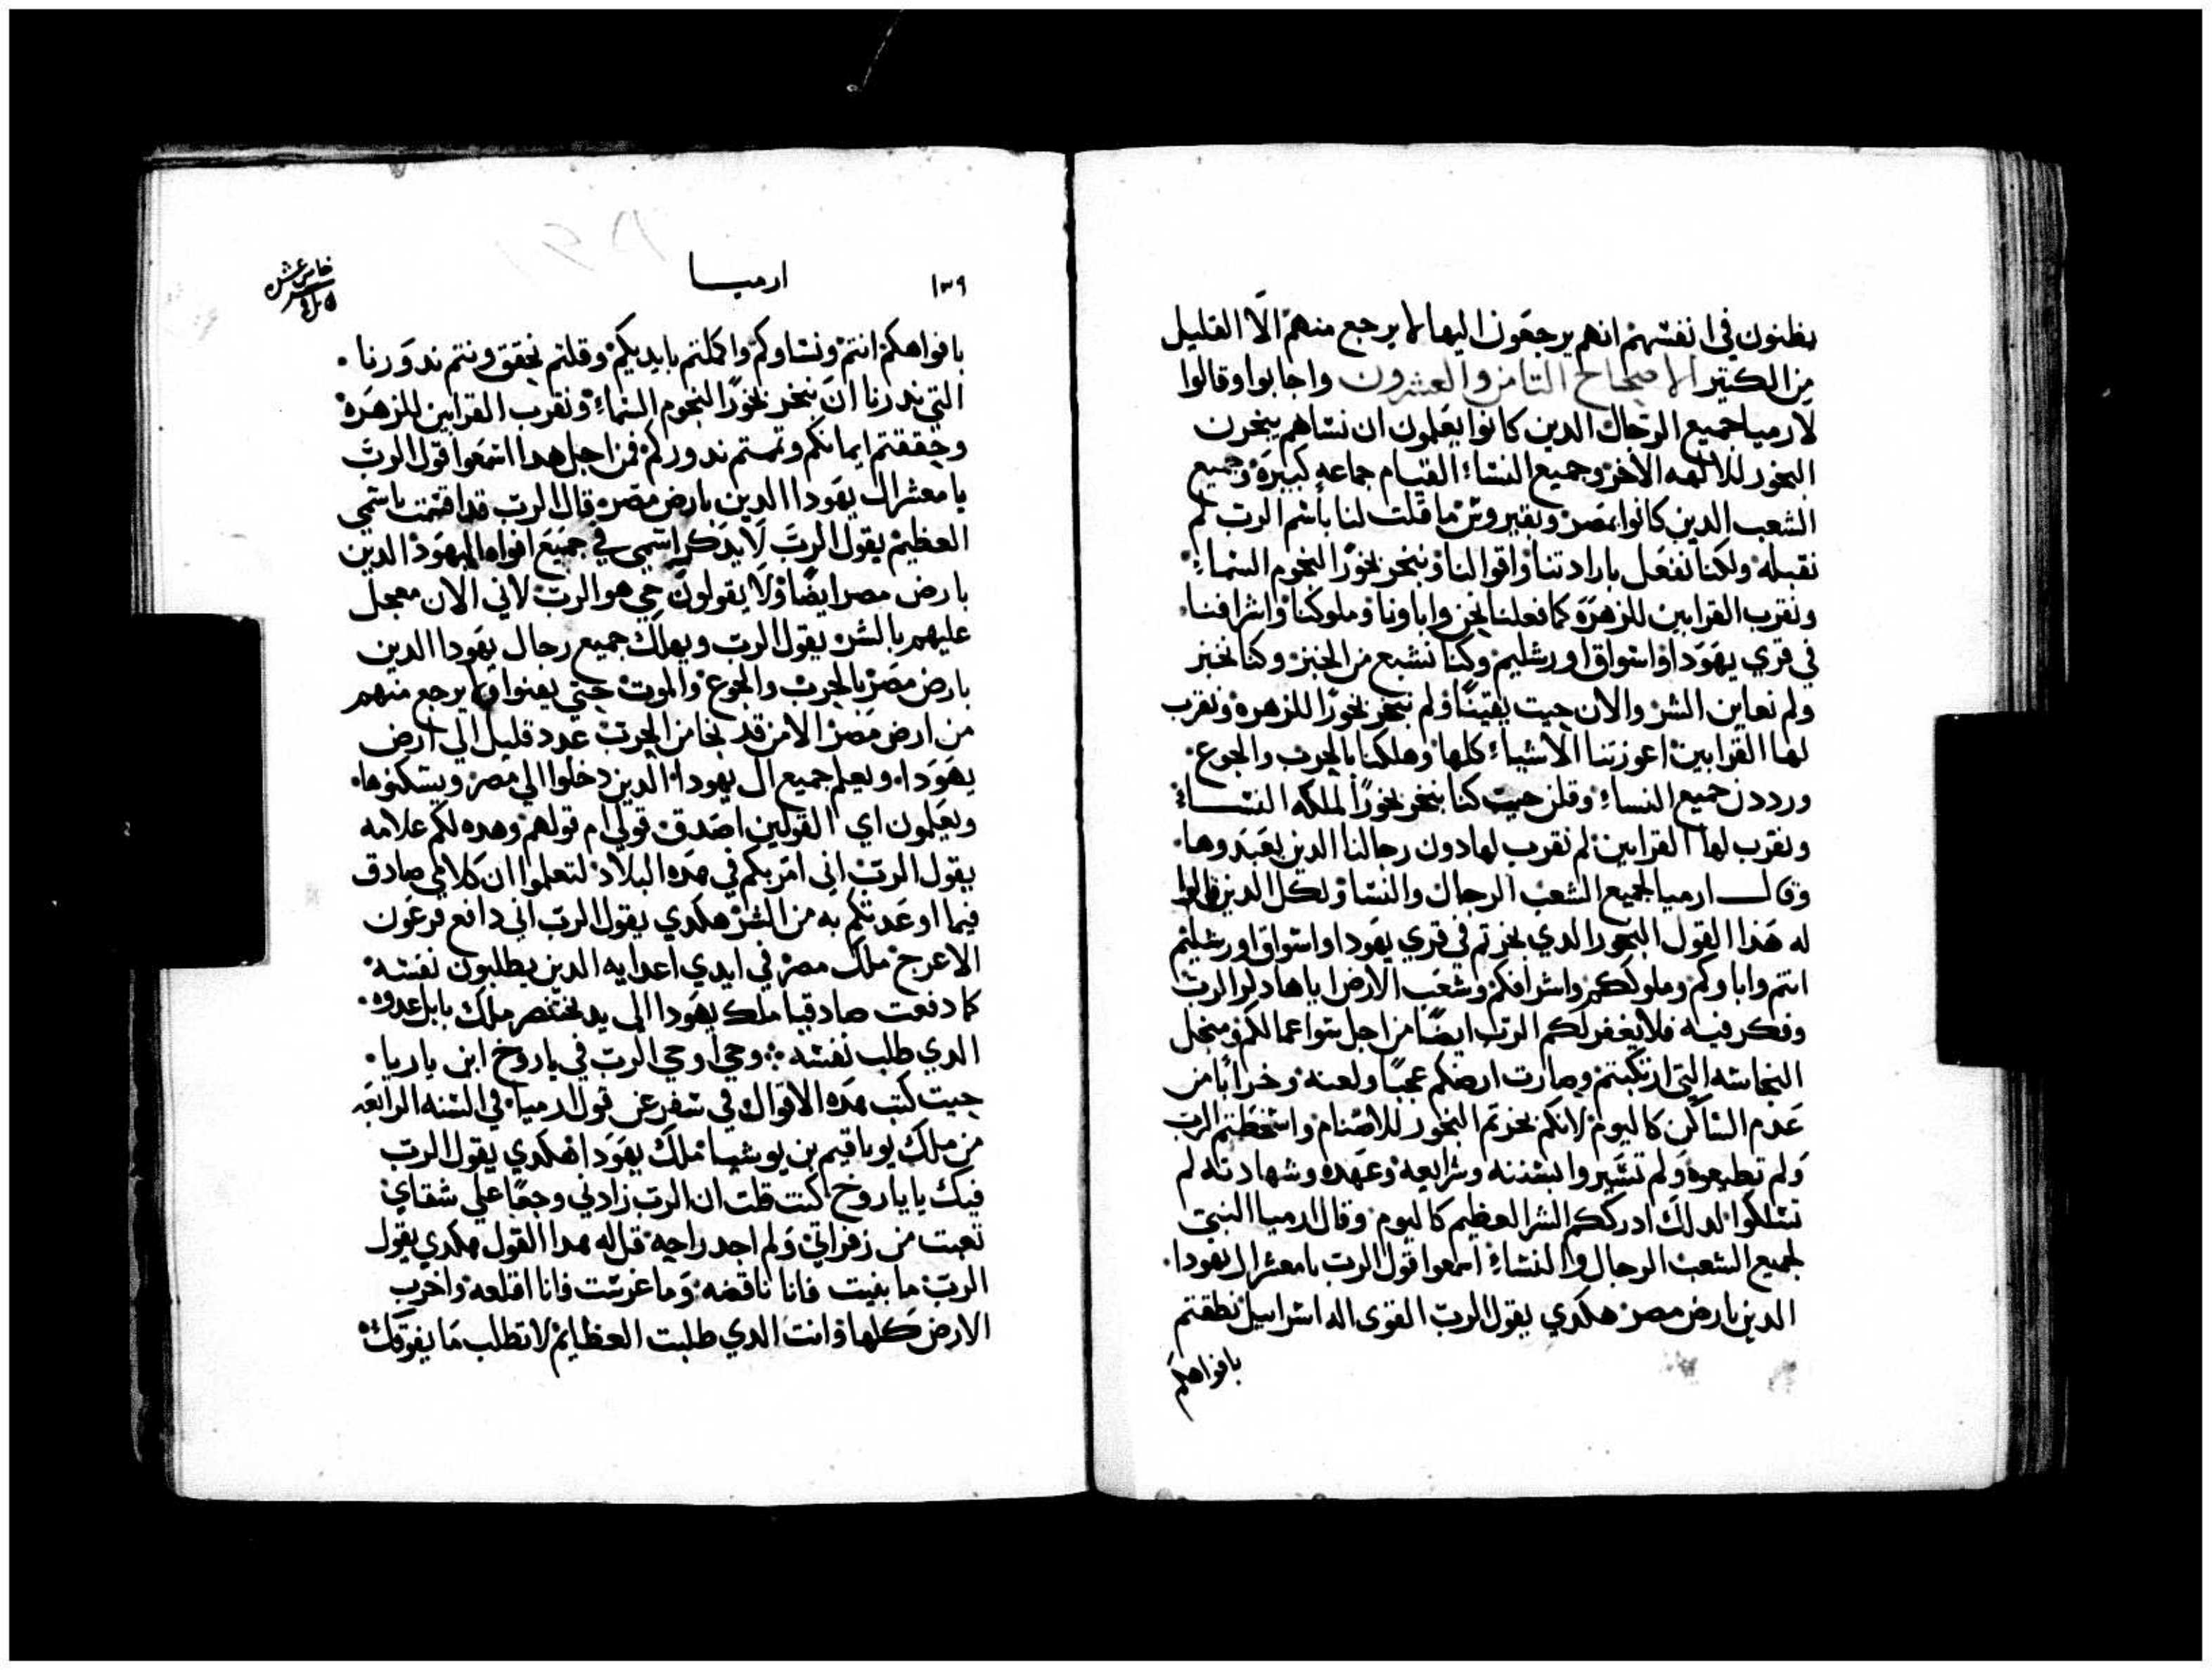 يظنون في انفسهم انهم يرجعون اليها لا يرجع منهم الا القليل
من الكتير الاصحاح التامن والعشرون واجابوا وقالوا
لارميا جميع الرجال الدين كانوا يعلمون ان نساهم يبخرن
البخور للالهه الاخر وجميع النساء القيام جماعه كبيرة وجميع
الشعب الدين كانوا بمصر وبقيروس ما قلت لنا باسم الرب لم
نقبله ولكنا نفعل بارادتنا واقوالنا ونبخر بخورا لنجوم السماء
ونقرب القرابين للزهرة كما فعلنا نحن واباونا وملوكنا واشرافنا
في قري يهودا واسواق اورشليم وكنا نشبع من الخبز وكنا بخير
ولم نعاين الشر والان حيت بقينا ولم نبخر بخورا للزهره ونقرب
لها القرابين اعوزتنا الاشياء كلها وهلكنا بالحرب والجوع
ورددن جميع النساء وقلن حيت كنا نبخر بخورا لملكه النساء
ونقرب لها القرابين لم نقرب لها دون رجالنا الدين يعبدوها
وقال ارميا لجميع الشعب الرجال والنسا ولكل الدين قالوا
له هدا القول البخور الدي بخرتم في قري يهودا واسواق اورشليم
انتم واباوكم وملوككم واشرافكم وشعب الارض اياها دكر الرب
وفكر فيه فلا يغفر لكم الرب ايضا من اجل سوا عمالكم ومن اجل
النجاسه التي ارتكبتم وصارت ارضكم عجبا ولعنه وخرابا من
عدم الساكن كاليوم لانكم بخرتم البخور للاصنام واسخطتم الرب
ولم تطيعوه ولم تسيروا بسننه وشرايعه وعهده وشهادته لم
تسلكوا لدلك ادرككم الشر العظيم كاليوم وقال ارميا النبي
لجميع الشعب الرجال والنساء اسمعوا قول الرب يا معشر ال يهودا
الدين بارض مصر هكدي يقول الرب القوي اله اسراييل نطقتم
بافواهكم
١٣٩
ارميا
خامس عشر
بافواهكم انتم ونساوكم واكملتم بايديكم وقلتم نحقق ونتم ندورنا
التي ندرنا ان نبخر بخورا لنجوم السماء ونقرب القرابين للزهرة
وحققتم ايمانكم وتمتم ندوركم فمن اجل هدا اسمعوا قول الرب
يا معشر ال يهودا الدين بارض مصر قال الرب قد اقسمت باسمي
العظيم يقول الرب لا يدكر اسمي في جميع افواه اليهود الدين
بارض مصر ايضا ولا يقولون حي هو الرب لاني الان معجل
عليهم بالشر يقول الرب ويهلك جميع رجال يهودا الدين
بارض مصر بالحرب والجوع والموت حتي يفنوا ولا يرجع منهم
من ارض مصر الا من قد نجا من الحرب عدد قليل الي ارض
يهودا ويعلم جميع ال يهودا الدين دخلوا الي مصر ويسكنوها
ويعلمون اي القولين اصدق قولي ام قولهم وهده لكم علامه
يقول الرب اني امر بكم في هده البلاد لتعلموا ان كلامي صادق
فيما اوعدتكم به من الشر هكدي يقول الرب اني دافع فرعون
الاعرج ملك مصر في ايدي اعدايه الدين يطلبون نفسه
كما دفعت صادقيا ملك يهودا الي يد بختنصر ملك بابل عدوه
الدي طلب نفسه وحي اوحي الرب في ياروخ ابن ياريا
حيت كتب هده الاقوال في سفر عن قول ارميا في السنه الرابعه
من ملك يوياقيم بن يوشيا ملك يهودا هكدي يقول الرب
فيك يا ياروخ كنت قلت ان الرب زادني وجعا علي شقاي
تعبت من زفراتي ولم اجد راحه قل له هدا القول هكدي يقول
الرب ما بنيت فانا ناقضه وما غرست فانا اقلعه واخرب
الارض كلها وانت الدي طلبت العظايم لا تطلب ما يفوتك